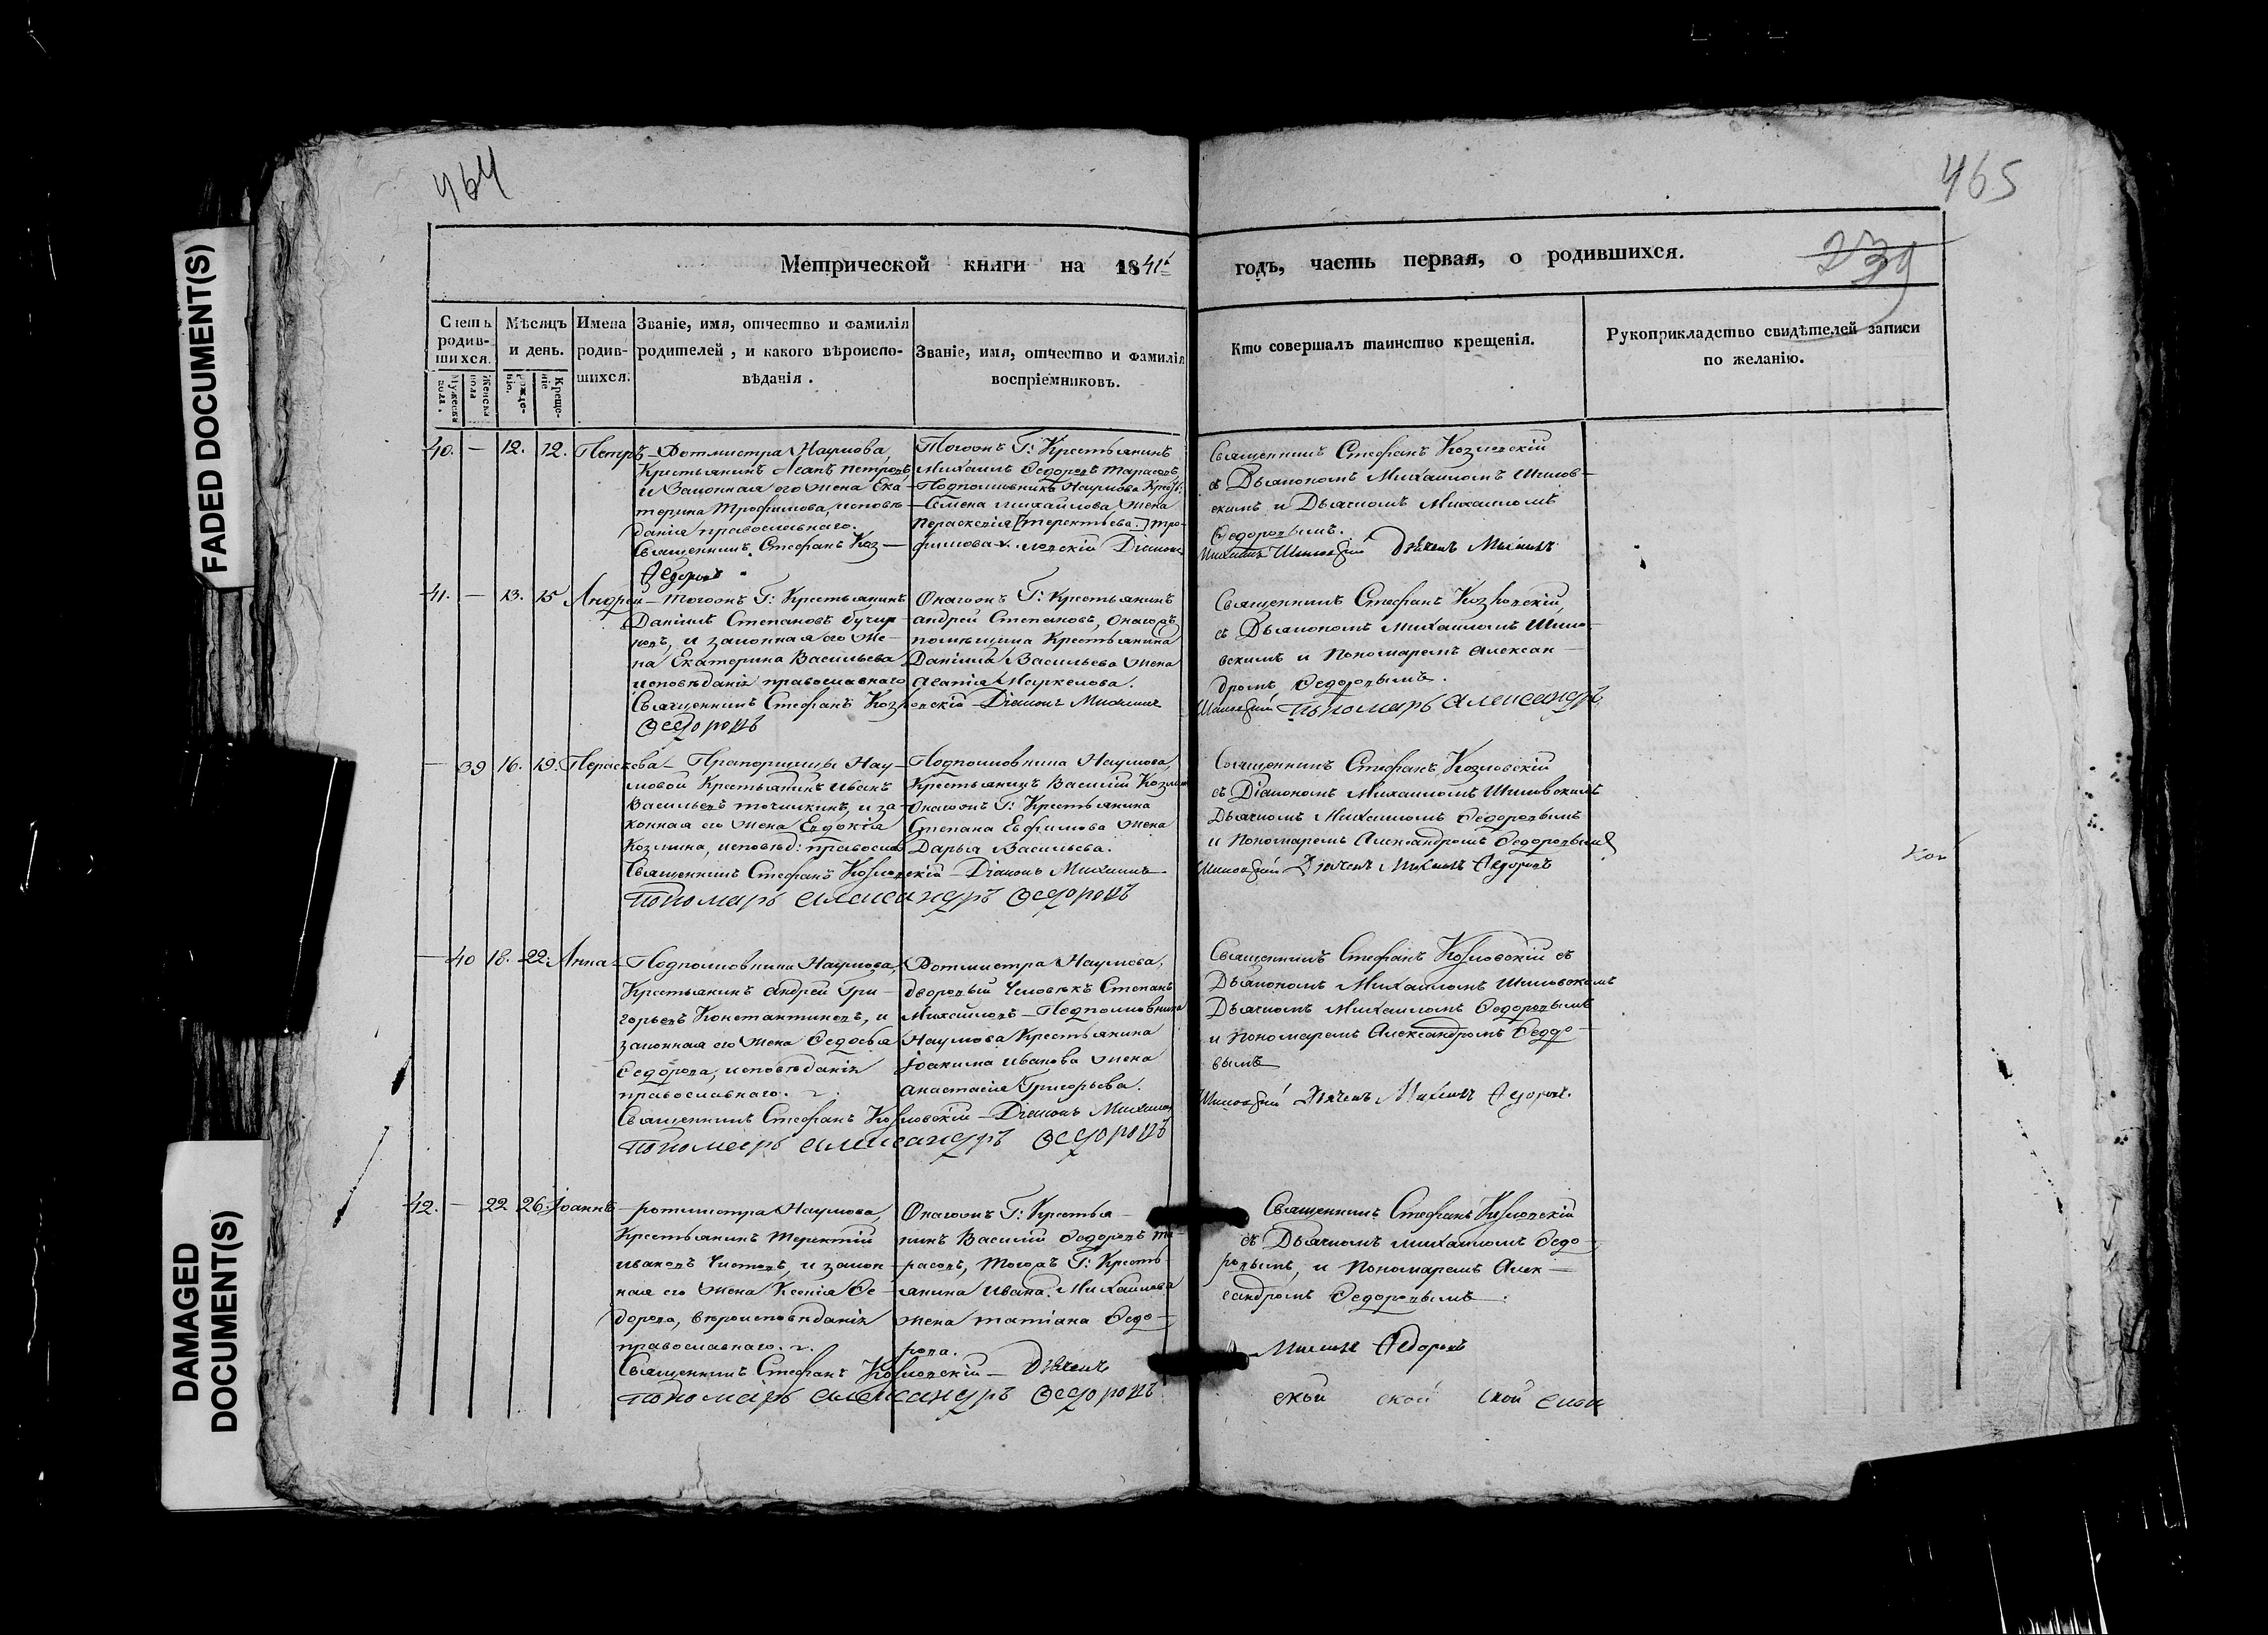 FADED DOCUMENT(S)
DAMAGED DOCUMENT(S)
464
465
239
Метрической книги на 1841й
годъ, часть первая, о родившихся.
Счетъ родив-шихся.
Мужеска пола.
Женска пола
Мѣсяцъ и день.
рожде-нія.
Креще-нія
Имена родив-шихся.
Званіе, имя, отчество и фамилія
родителей, и какого вѣроиспо-
вѣданія.
Званіе, имя, отчество и фамилія
воспріемниковъ.
Кто совершалъ таинство крещенія.
Рукоприкладство свидѣтелей записи
по желанію.
40. — 12. 12. Петръ
Ротмистра Наумова,
Крестьянинъ Петровъ
и Законная его жена Ека-
терина Трофимова, исповѣ-
данія православнаго.
Священникъ Стефанъ Коз-
Тогожъ Г: Крестьянинъ
Михаилъ Ѳедоровъ Тарасовъ
Подполковника Наумова Крест:
Семена Михайлова жена
Пераскевія [Терентьева.] Тро-
фимова. ловскій Діаконъ
Священникъ Стефанъ Козловскій
съ Дьякономъ Михаиломъ Шилов-
скимъ и Дьячкомъ Михаиломъ
Ѳедоровымъ.
Михаилъ Шиловскій Дьячекъ Михаилъ
Ѳедоровъ
41. — 13. 15 Андрей
Тогожъ Г: Крестьянинъ
Даніилъ Степановъ
и законная его же-
на Екатерина Васильева
исповѣданія православнаго
Священникъ Стефанъ Козловскій Діаконъ Михаилъ
Ѳедоровъ
Онагожъ Г: Крестьянинъ
Андрей Степановъ, Онагожъ
помѣщика Крестьянина
Даніила Васильева жена
Агапія Маркелова.
Священникъ Стефанъ Козловскій,
съ Дьякономъ Михаиломъ Шило-
вскимъ и Пономаремъ Алексан-
дромъ Ѳедоровымъ.
Шиловскій Пономарь Александръ
— 39 16. 19. Пераскева
Прапорщицы Нау-
мовой Крестьянинъ Иванъ
Васильевъ Точилкинъ, и за-
конная его жена Евдокія
Козмина, исповѣд: православ
Священникъ Стефанъ Козловскій Діаконъ Михаилъ
Пономарь Александръ Ѳедоровъ
Подполковника Наумова,
Крестьянинъ Василій Козмин
Онагожъ Г: Крестьянина
Степана Евфимова жена
Дарья Васильева.
Священникъ Стефанъ Козловскій
съ Діакономъ Михаиломъ Шиловскимъ
Дьячкомъ Михаиломъ Ѳедоровымъ
и Пономаремъ Александромъ Ѳедоровымъ
Шиловскій Дьячекъ Михаилъ Ѳедоровъ
— 40 18. 22. Анна
Подполковника Наумова,
Крестьянинъ Андрей Гри-
горьевъ Константиновъ, и
законная его жена Ѳедосья
Ѳедорова, исповѣданія
православнаго.
Священникъ Стефанъ Козловскій Діаконъ Михаилъ
Пономарь Александръ Ѳедоровъ
Ротмистра Наумова,
дворовый Человѣкъ Степанъ
Михайловъ Подполковника
Наумова Крестьянина
Іоакима Иванова жена
Анастасія Григорьева.
Священникъ Стефанъ Козловскій съ
Дьякономъ Михаиломъ Шиловскимъ
Дьячкомъ Михаиломъ Ѳедоровымъ
и Пономаремъ Александромъ Ѳедо-
вымъ
Шиловскій Дьячекъ Михаилъ Ѳедоров.
42. — 22 26. Іоаннъ
ротмистра Наумова,
Крестьянинъ Терентій
Ивановъ Чистовъ, и закон-
ная его жена Ксенія Ѳе-
дорова, вѣроисповѣданія
православнаго.
Священникъ Стефанъ Козловскій Дьячекъ
Пономарь Александръ Ѳедоровъ
Онагожъ Г: Крестья-
нинъ Василій Ѳедоровъ Та-
расовъ, Тогожъ Г: Кресть-
янина Ивана Михайлова
жена Татіана Ѳедо-
рова.
Священникъ Стефанъ Козловскій
съ Дьячкомъ Михаиломъ Ѳедо-
ровымъ, и Пономаремъ Алек-
сандромъ Ѳедоровымъ.
Михаилъ Ѳедоровъ
ской ской ской